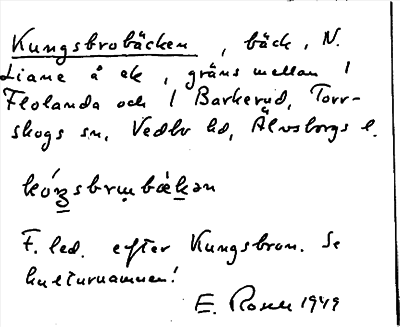 Kungsbrobäcken, bäck, N.
Liane å ek, gräns mellan 1
Flolanda och 1 Barkerud, Torr-
skogs sn, Vedbo hd, Älvsborgs l.
F. led. efter Kungsbron. Se
kulturnamnen!
E. Rosell 1949